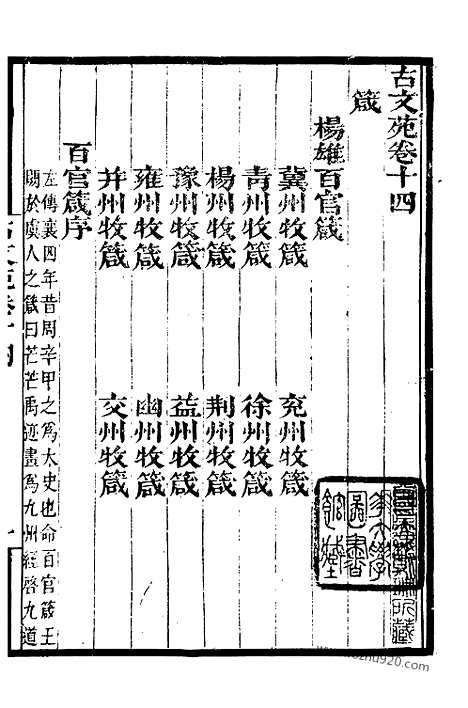 古文苑卷十四
箴
楊雄百官箴
冀州牧箴 兗州牧箴
青州牧箴 徐州牧箴
楊州牧箴 荆州牧箴
豫州牧箴 益州牧箴
雍州牧箴 幽州牧箴
并州牧箴 交州牧箴
百官箴序
左傳襄四年昔周辛甲之爲太史也命百官箴王
闕於虞人之箴曰芒芒禹迹畫爲九州經啓九道